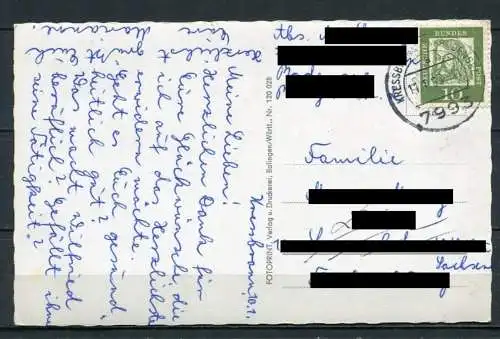 Kressbronn, 10.1.
Meine Lieben!
Herzlichen Dank für
Eure Glückwünsche, die
auf das Herzlichste
erwidern möchte.
Geht es Euch gesund-
heitlich gut?
Was macht Wilfried
beruflich? Gefällt ihm
seine Tätigkeit?
Euch
grüßt
herzlichst
Eure
Marianne
FOTOPRINT, Verlag u. Druckerei, Balingen/Württ., Nr. 120 028
Abs.
DEUTSCHE BUNDESPOST
10
KRESSB
7993
Familie
Sachsen